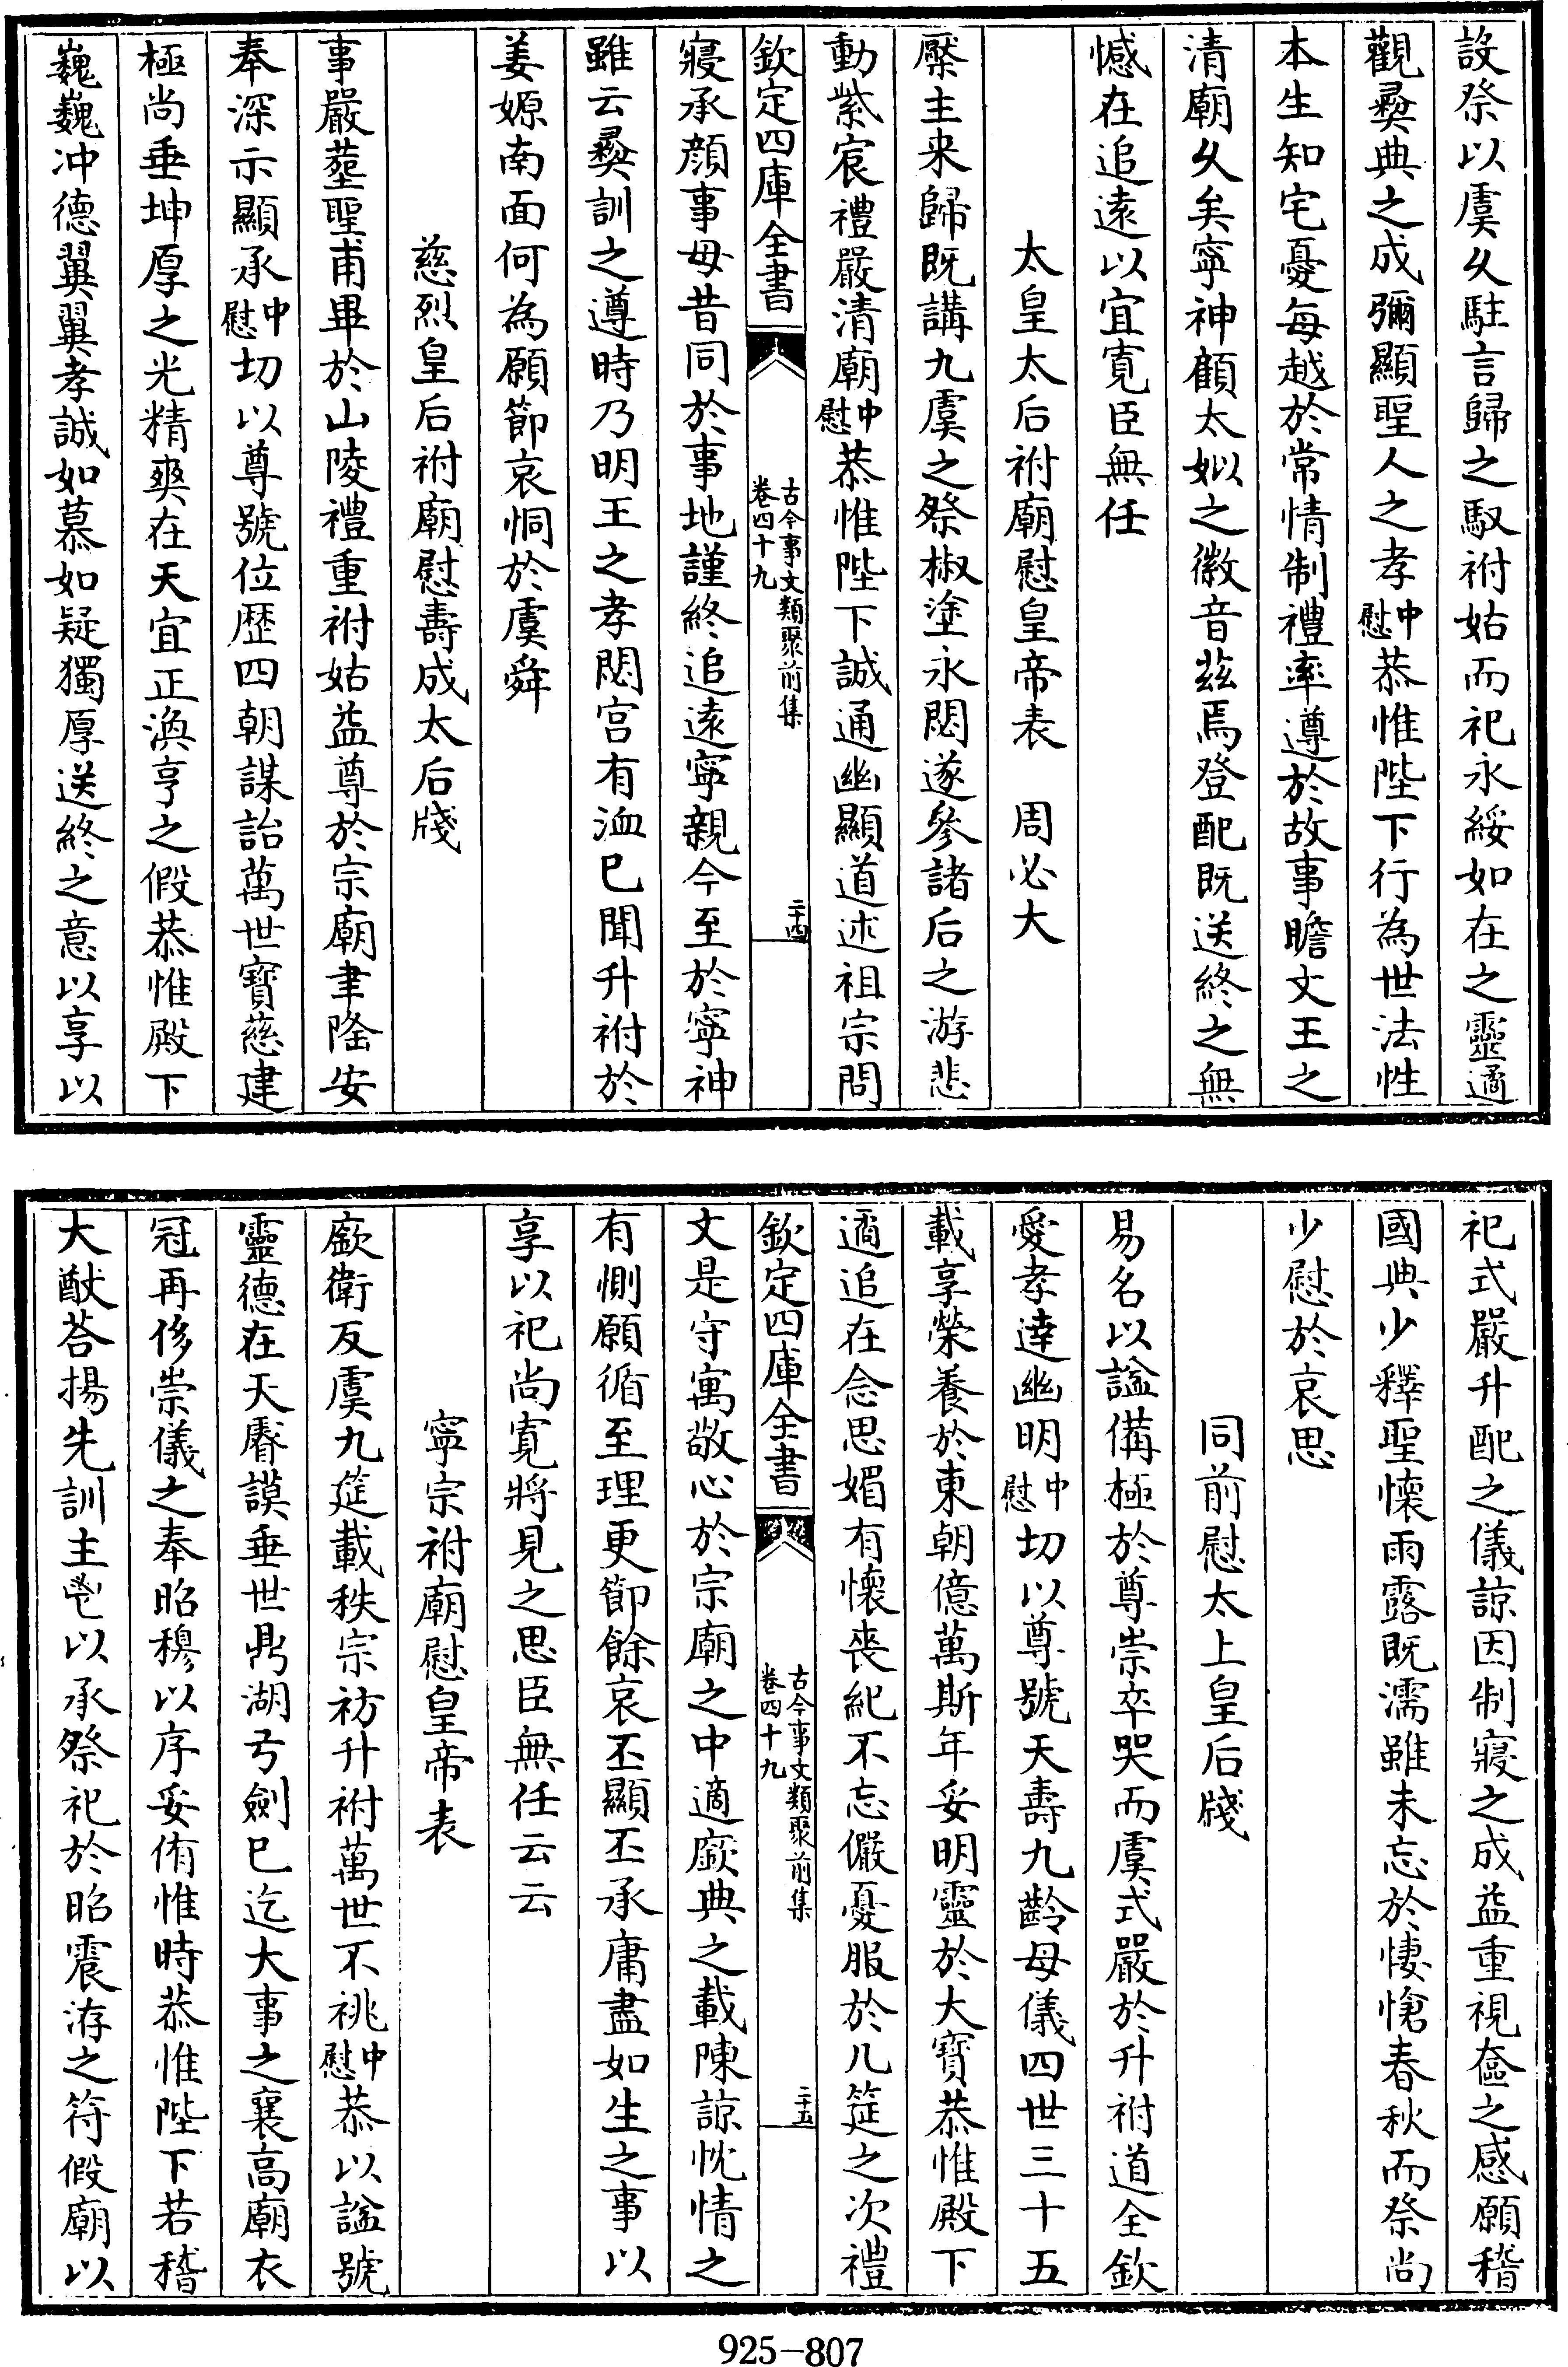 設祭以虞乆駐言歸之馭祔姑而祀永綏如在之靈適
觀彞典之成彌顯聖人之孝中慰恭惟陛下行為世法性
本生知宅憂每越於常情制禮率遵於故事瞻文王之
清廟乆矣寧神顧太姒之徽音茲焉登配既送終之無
憾在追逺以宜寛臣無任
太皇太后祔廟慰皇帝表　周必大
縻主来歸既講九虞之祭椒塗永閟遂參諸后之游悲
動紫宸禮嚴清廟中慰恭惟陛下誠通幽顯道述祖宗問
欽定四庫全書
古今事文類聚前集
卷四十九
二十四
寢承顔事毋昔同於事地謹終追逺寧親今至於寧神
雖云彞訓之遵時乃明王之孝閟宫有洫巳聞升祔於
姜嫄南面何為願節哀恫於虞舜
慈烈皇后祔廟慰壽成太后牋
事嚴塟聖甫畢於山陵禮重祔姑益尊於宗廟聿隆安
奉深示顯承中慰切以尊號位歴四朝謀詒萬世寳慈建
極尚垂坤厚之光精爽在天宜正渙亨之假恭惟殿下
巍巍冲德翼翼孝誠如慕如疑獨厚送終之意以享以
祀式嚴升配之儀諒因制寢之成益重視奩之感願稽
國典少釋聖懐雨露既濡雖未忘於悽愴春秋而祭尚
少慰於哀思
同前慰太上皇后牋
易名以諡備極於尊崇卒哭而虞式嚴於升祔道全欽
愛孝達幽明中慰切以尊號天壽九齡母儀四世三十五
載享榮養於東朝億萬斯年妥明靈於大寳恭惟殿下
遹追在念思媚有懐丧紀不忘儼憂服於几筵之次禮
欽定四庫全書
古今事文類聚前集
卷四十九
二十五
文是守寓敬心於宗廟之中適厥典之載陳諒忱情之
有惻願循至理更節餘哀丕顯丕承庸盡如生之事以
享以祀尚寛將見之思臣無任云云
寧宗祔廟慰皇帝表
厳衛反虞九筵載秩宗祊升祔萬世不祧中慰恭以諡號
靈德在天睿謨垂世鼎湖弓劍巳迄大事之襄高廟衣
冠再侈崇儀之奉昭穆以序妥侑惟時恭惟陛下若稽
大猷荅揚先訓主鬯以承祭祀於昭震洊之符假廟以
925-807